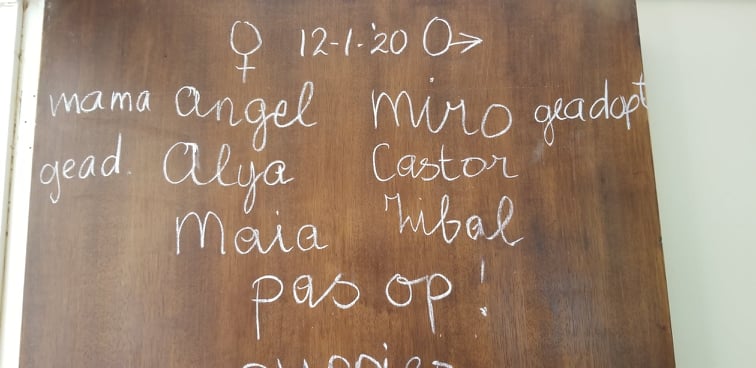 ♀ 12-1-'20 ♂
mama Angel Miro geadopt
gead. Alya Castor
Maia Zibal
pas op!
puppies